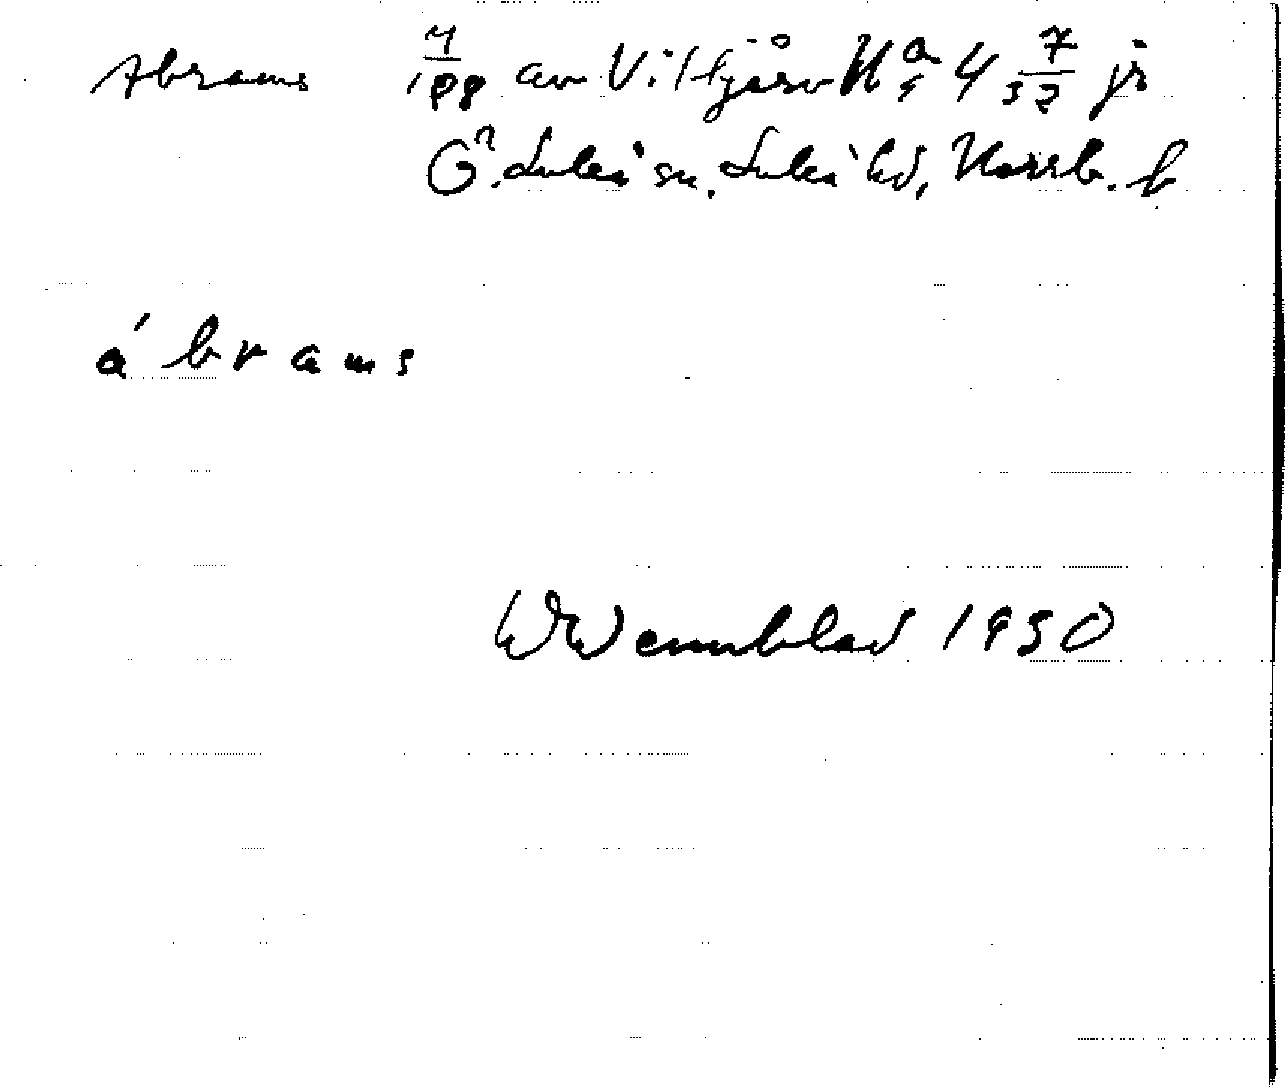 Abrams av Vittjärv N:a 4 jr
G. Luleå sn. Luleå hd, Norrb. l
á b r a m s
W Wennblad 1950